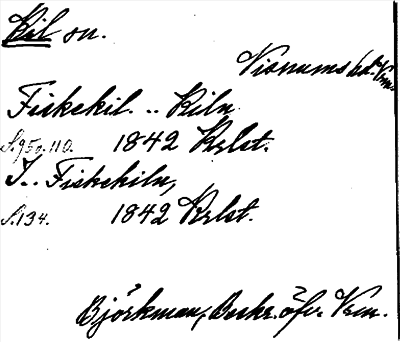 Kil sn.
Visnums hd. Vrm.
Fiskekil .. Kiln
S. 95 o. 110. 1842 Krlst.
I.. Fiskekiln,
S. 134. 1842 Krlst.
Björkman, Beskr. öfv. Vrm.